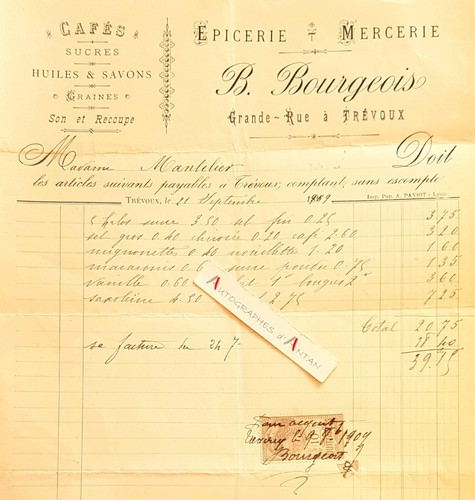 CAFÉS
SUCRES
HUILES & SAVONS
GRAINES
Son et Recoupe
EPICERIE - MERCERIE
B. Bourgeois
Grande-Rue à TRÉVOUX
Madame Mantelier Doit
les articles suivants payables à Trévoux, comptant, sans escompte
TRÉVOUX, le 21 Septembre 1909 Imp. Pap. A. PAVIOT - Lyon
5 kilos sucre 3.50 sel fin 0.25 3,75
sel gros 0.40 chicorée 0.20 café 2.60 3,20
mignonette 0.40 1.20 1 60
macaronis 0.6 sucre poudre 0.75 1.35
vanille 0.60 bougies 3.60
4.50 2.75 7.25
Total 20.75
sa facture du 24 7-
39.15
AUTOGRAPHES d'ANTAN
Pour acquit
le 9 8bre 1909
Bourgeois